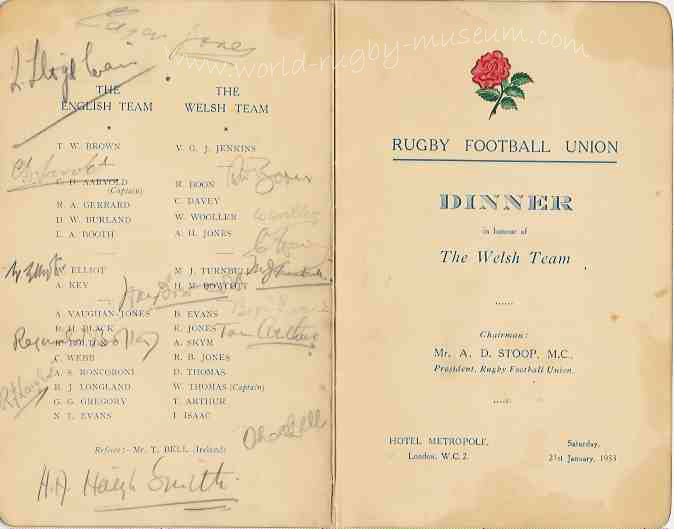 www.world-rugby-museum.com
THE ENGLISH TEAM
T. W. BROWN
C. D. AARVOLD (Captain)
R. A. GERRARD
D. W. BURLAND
L. A. BOOTH
ELLIOT
A. KEY
A. VAUGHAN-JONES
B. H. BLACK
C. WEBB
A. S. RONCORONI
R. J. LONGLAND
G. G. GREGORY
N. L. EVANS
THE WELSH TEAM
V. G. J. JENKINS
R. BOON
C. DAVEY
W. WOOLLER
A. H. JONES
M. J. TURNBULL
H. M. BOWCOTT
B. EVANS
R. JONES
A. SKYM
R. B. JONES
D. THOMAS
W. THOMAS (Captain)
T. ARTHUR
I. ISAAC
Referee:- Mr. T. BELL (Ireland)
Tom Arthur
H.A. Haigh Smith.
RUGBY FOOTBALL UNION
DINNER
in honour of
The Welsh Team
Chairman:
Mr. A. D. STOOP, M.C.,
President, Rugby Football Union.
HOTEL METROPOLE,
London, W.C.2.
Saturday,
21st January, 1933